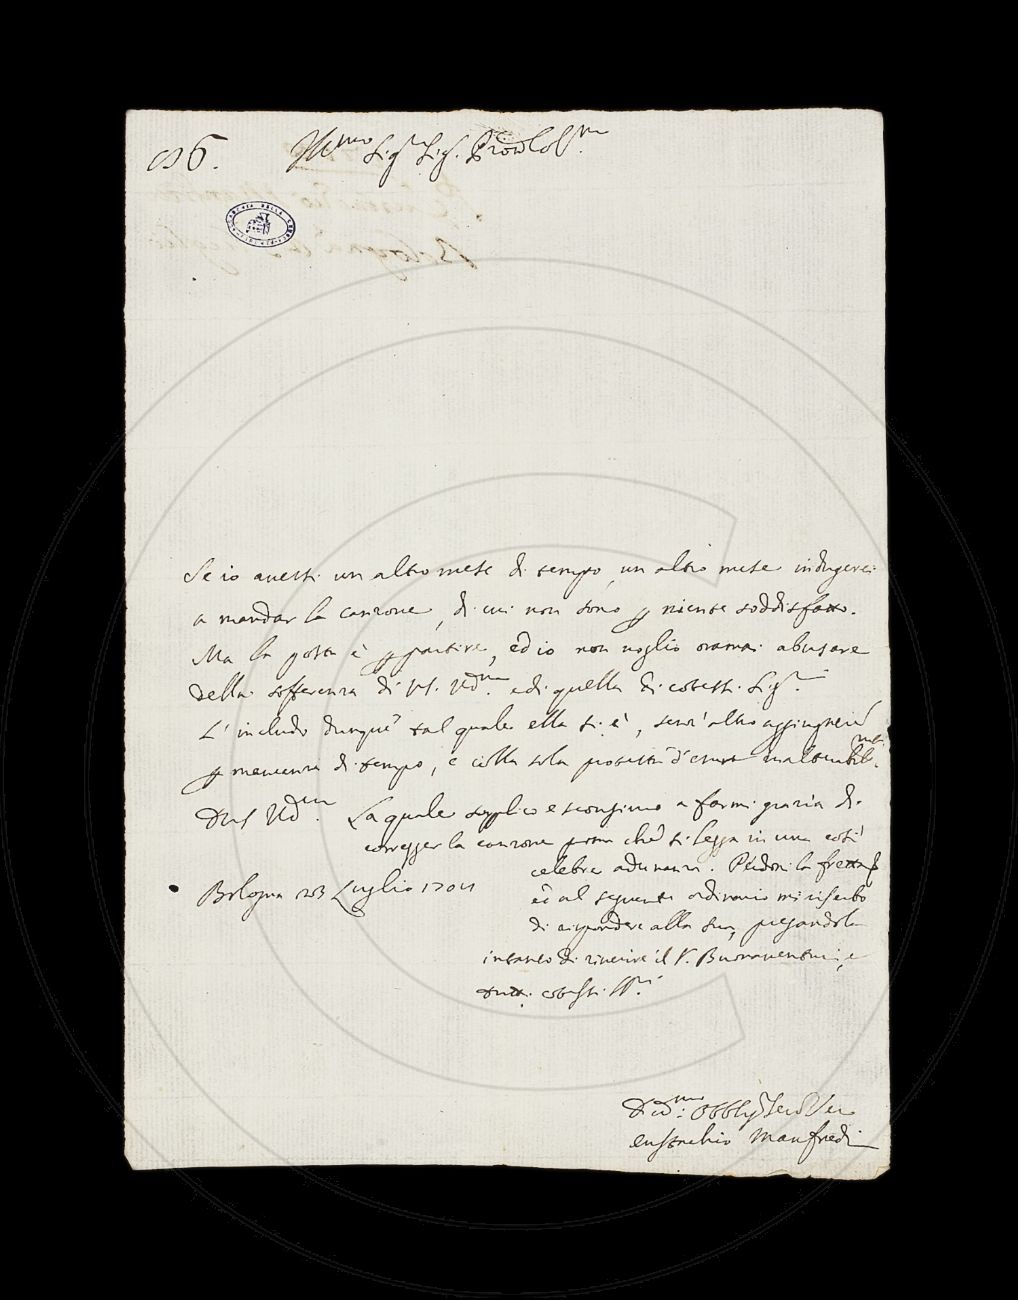 86.
Ill.mo Sig.r Sig. Pron Col.mo
Se io avessi un altro mese di tempo, un altro mese indugerei
a mandar la canzone, di cui non sono p niente soddisfatto.
Ma la posta è p partire, ed io non voglio oramai abusare
della sofferenza di V.S. Ill.ma e di quella di cotesti Sig.ri
L'includo dunque tal quale ella si è, senz'altro aggiugnervi
p mancanza di tempo, e colla sola protesta d'esser inalterabilmte
Di V.S. Ill.ma La quale supplico e scongiuro a farmi grazia di
corregger la canzone prima che si legga in una così
celebre adunanza. Perdoni la fretta
Bologna 23 Luglio 1704
ed al seguente ordinario mi riserbo
di rispondere alla sua, pregandola
intanto di riverire il S. Buonaventuri, e
tutti cotesti SS.ri
Div.mo Obblig Serv Vero
Eustachio Manfredi